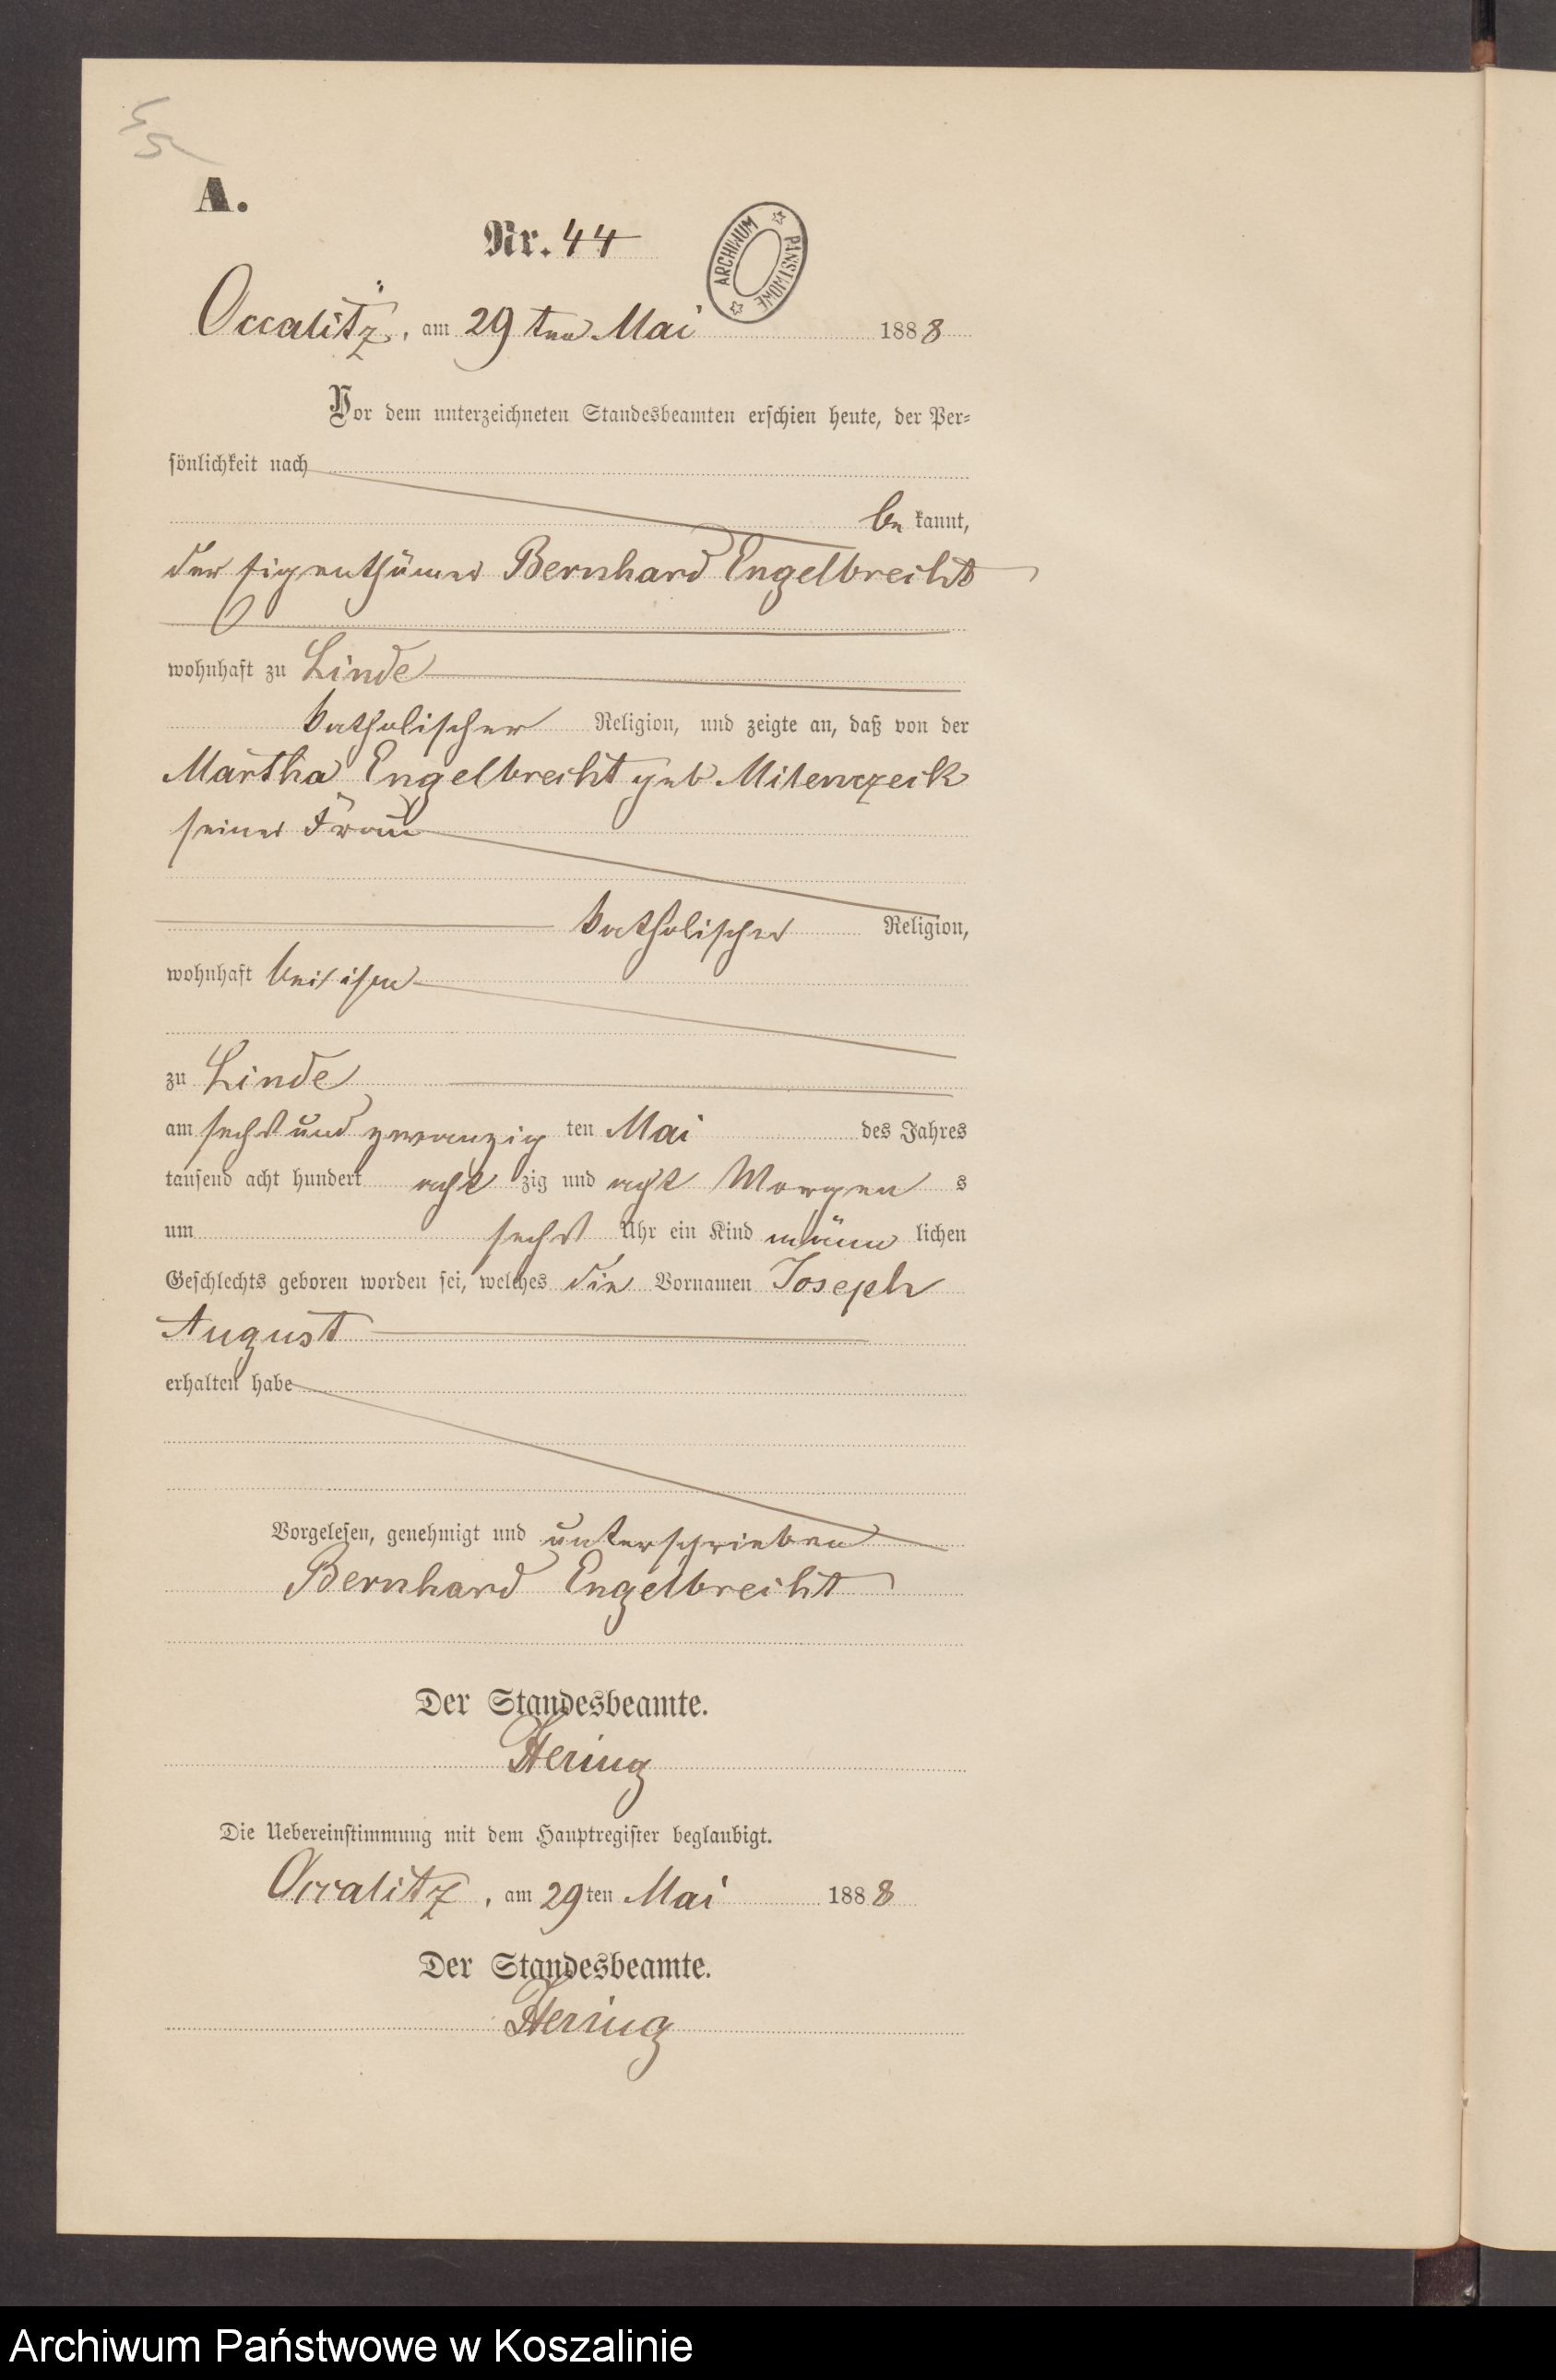 45
A.
Nr. 44
ARCHIWUM PAŃSTWOWE
Occalitz, am 29 ten Mai 1888
Vor dem unterzeichneten Standesbeamten erschien heute, der Per-
sönlichkeit nach
be kannt,
der Eigenthümer Bernhard Engelbrecht
wohnhaft zu Linde
katholischer Religion, und zeigte an, daß von der
Martha Engelbrecht geb
seiner Frau
katholischer Religion,
wohnhaft bei ihm
zu Linde
am sechs und zwanzig ten Mai des Jahres
tausend acht hundert acht zig und acht Morgen s
um sechs Uhr ein Kind männ lichen
Geschlechts geboren worden sei, welches die Vornamen Joseph
August
erhalten habe
Vorgelesen, genehmigt und unterschrieben
Bernhard Engelbrecht
Der Standesbeamte.
Hering
Die Uebereinstimmung mit dem Hauptregister beglaubigt.
Occalitz, am 29 ten Mai 1888
Der Standesbeamte.
Hering
Archiwum Państwowe w Koszalinie